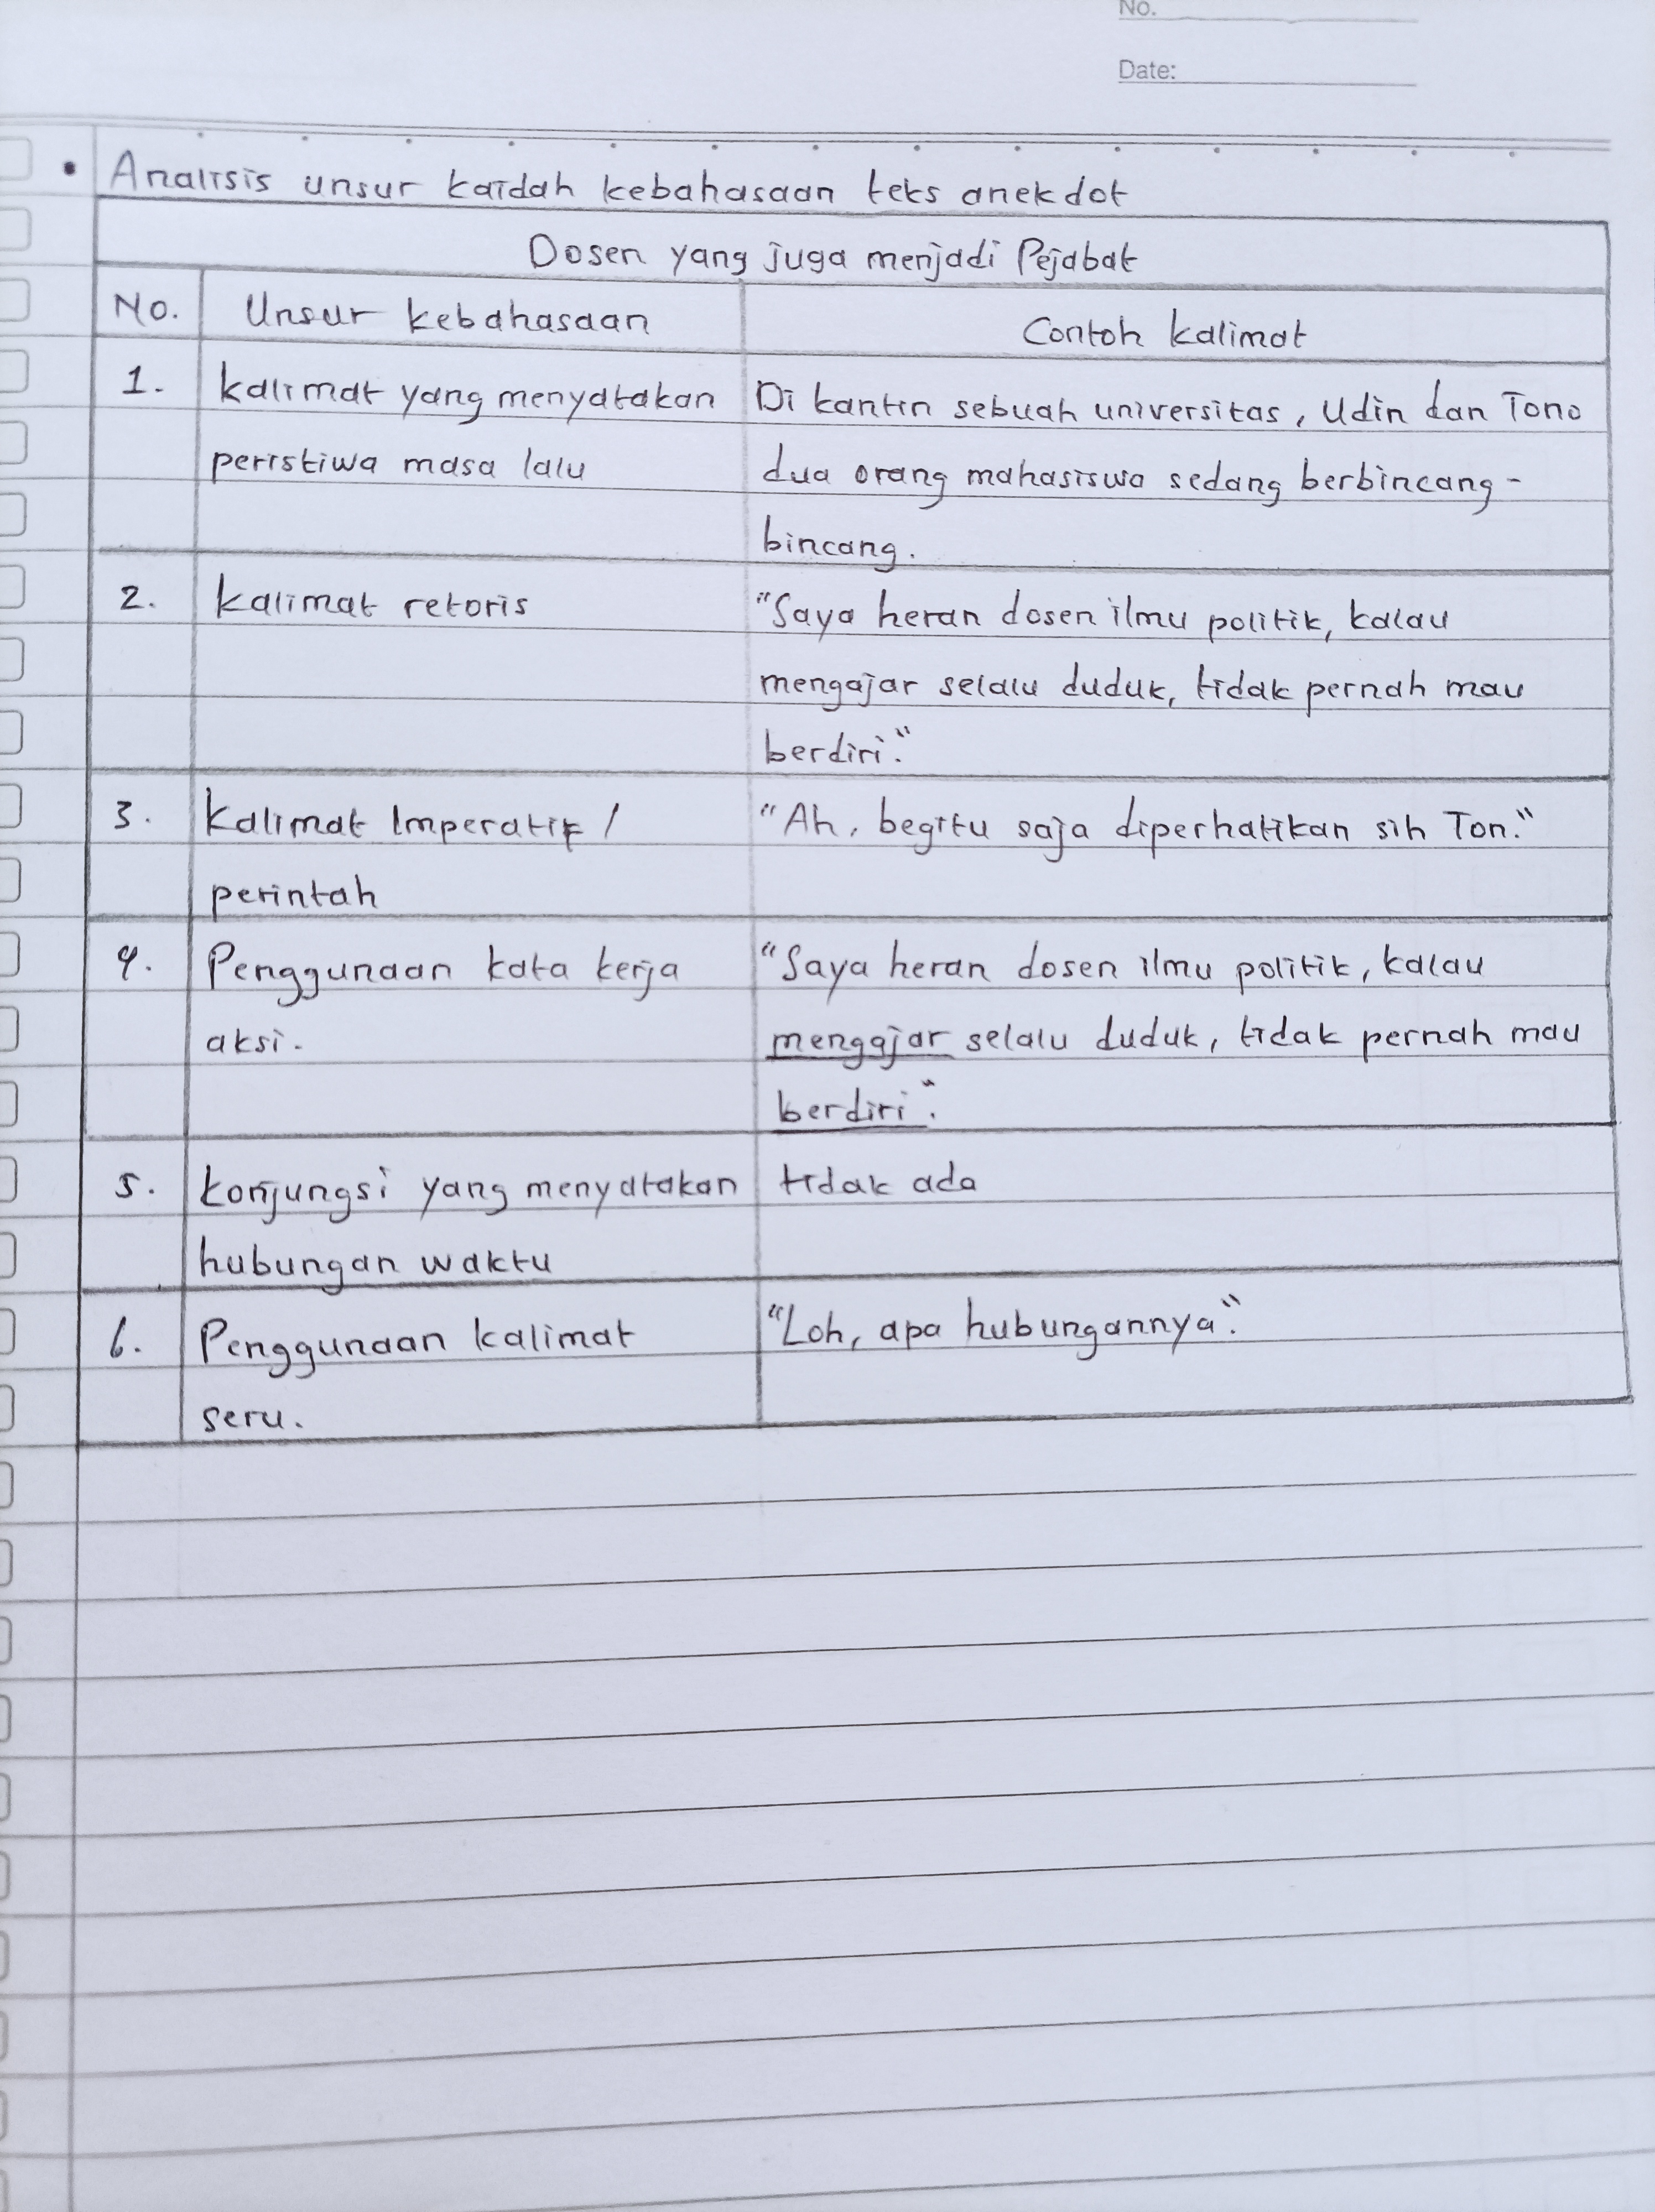 No.
Date:
• Analisis unsur kaidah kebahasaan teks anekdot
Dosen yang juga menjadi Pejabat
No. Unsur kebahasaan Contoh kalimat
1. kalimat yang menyatakan Di kantin sebuah universitas, Udin dan Tono
peristiwa masa lalu dua orang mahasiswa sedang berbincang-
bincang.
2. kalimat retoris "Saya heran dosen ilmu politik, kalau
mengajar selalu duduk, tidak pernah mau
berdiri."
3. Kalimat Imperatif / "Ah, begitu saja diperhatikan sih Ton."
perintah
4. Penggunaan kata kerja "Saya heran dosen ilmu politik, kalau
aksi. mengajar selalu duduk, tidak pernah mau
berdiri".
5. konjungsi yang menyatakan tidak ada
hubungan waktu
6. Penggunaan kalimat "Loh, apa hubungannya".
seru.